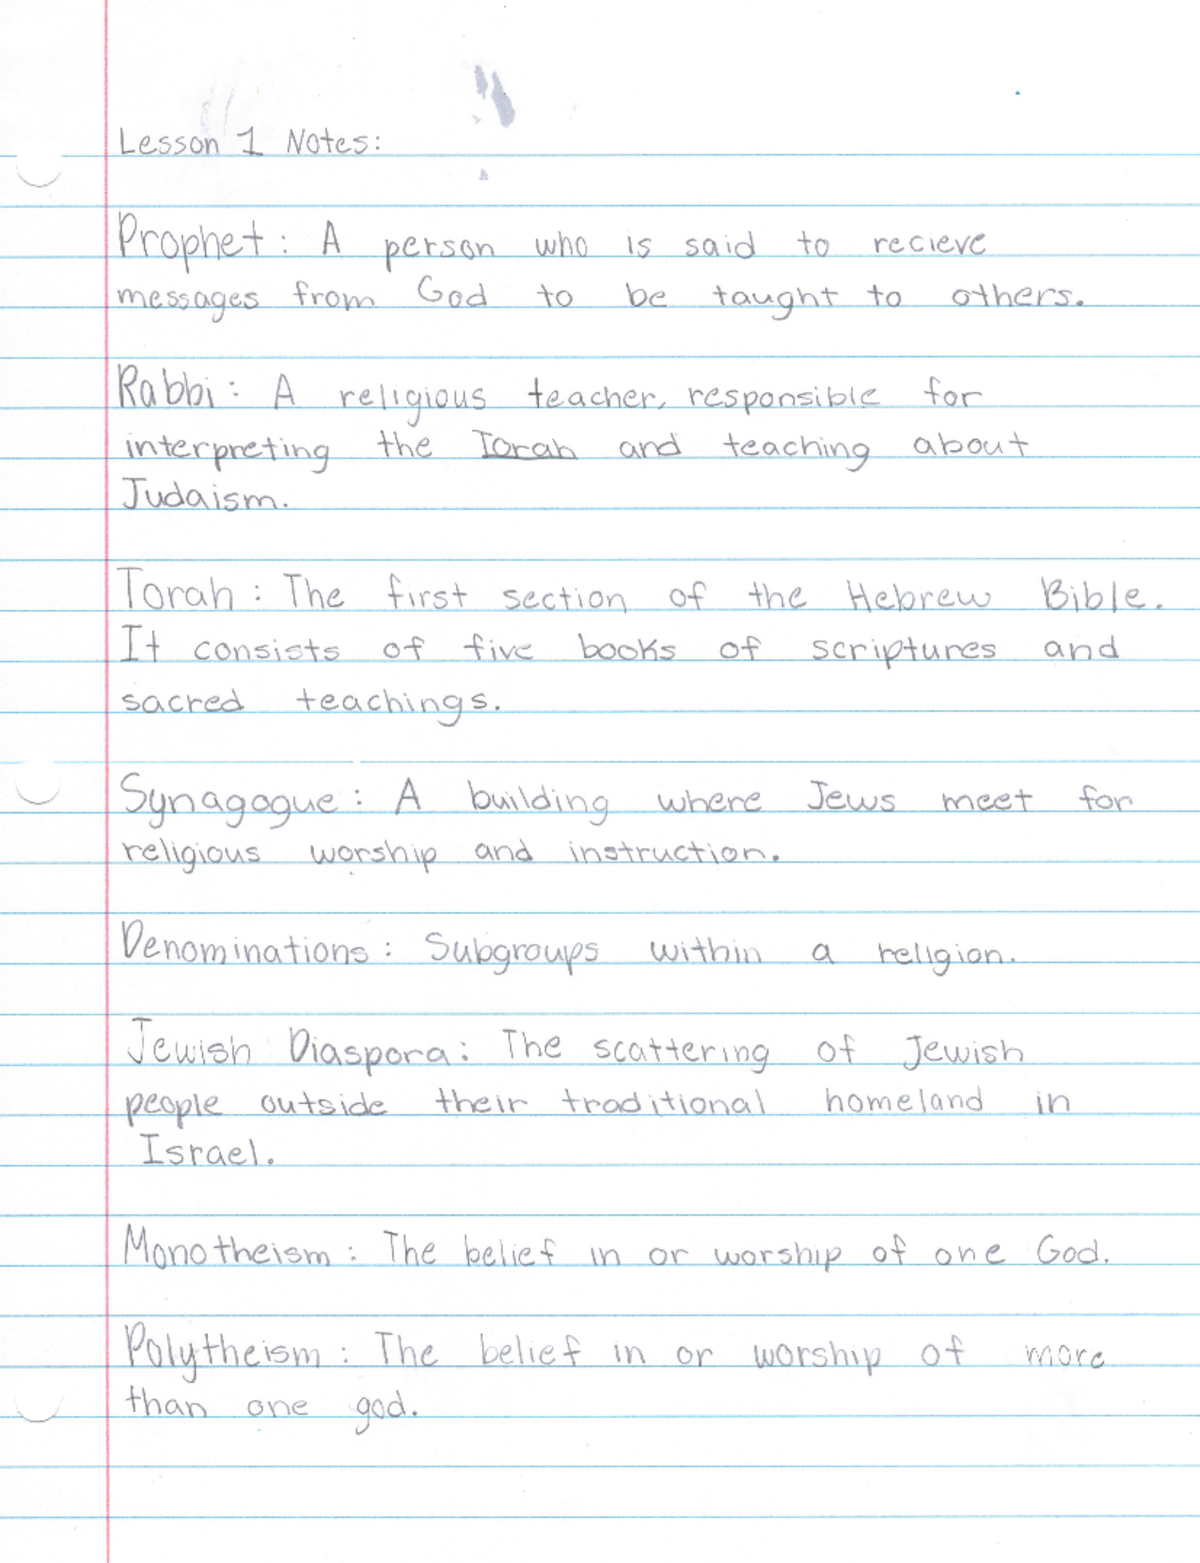 Lesson 1 Notes:
Prophet: A person who is said to recieve
messages from God to be taught to others.
Rabbi: A religious teacher, responsible for
interpreting the Torah and teaching about
Judaism.
Torah: The first section of the Hebrew Bible.
It consists of five books of scriptures and
sacred teachings.
Synagogue: A building where Jews meet for
religious worship and instruction.
Denominations: Subgroups within a religion.
Jewish Diaspora: The scattering of Jewish
people outside their traditional homeland in
Israel.
Monotheism: The belief in or worship of one God.
Polytheism: The belief in or worship of more
than one god.